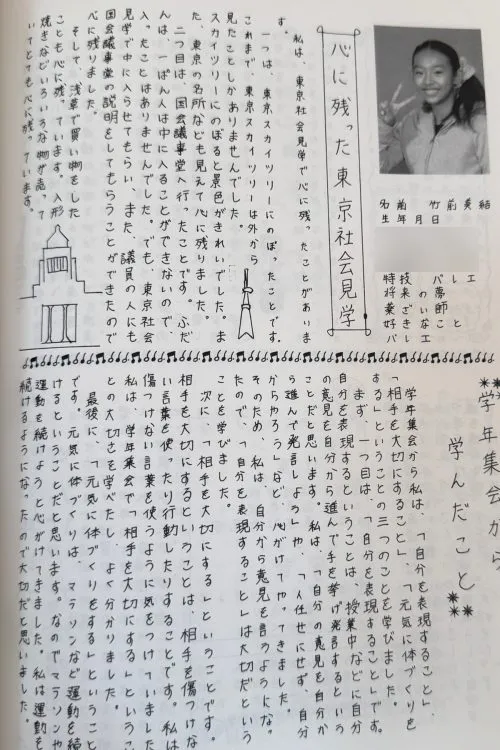 名前 竹前美結
生年月日
心に残った東京社会見学
私は、東京社会見学で心に残ったことがありま
す。
一つは、東京スカイツリーにのぼったことです。
これまで、東京スカイツリーは外から
見たことしかありませんでした。
スカイツリーにのぼると景色がきれいでした。ま
た、東京の名所なども見えて心に残りました。
二つ目は、国会議事堂へ行ったことです。ふだ
んは、一ぱん人は中に入ることができないので
入ったことはありませんでした。でも、東京社会
見学で中に入らせてもらい、また、議員の人にも
国会議事堂の説明をしてもらうことができたので
心に残りました。
そして、浅草で買い物をした
ことも心に残っています。人形
焼きなどいろいろな物が売って
いてとても心に残っています。
学年集会から
学んだこと
学年集会から私は、「自分を表現すること」、
「相手を大切にすること」、「元気に体づくりを
する」ということの三つのことを学びました。
まず、一つ目は、「自分を表現すること」です。
自分を表現するということは、授業中などに自分
の意見を自分から進んで手を挙げ発言するという
ことだと思います。私は、「自分の意見を自分か
ら進んで発言しよう」や、「人任せにせず、自分
からやろう」など、心がけてやってきました。
そのため、私は、自分から意見を言うようになっ
たので、「自分を表現すること」は大切だという
ことを学びました。
次に、「相手を大切にする」ということです。
相手を大切にするということは、相手を傷つけな
い言葉を使ったり行動したりすることです。私は
傷つけない言葉を使うように気をつけていました
私は、学年集会で「相手を大切にする」というこ
との大切さを学べたし、よく分かりました。
最後に、「元気に体づくりをする」ということ
です。元気に体づくりは、マラソンなど運動を続
けるということだと思います。なのでマラソンや
運動を続けようと心がけてきました。私は運動を
続けるようになったので大切だと思いました。